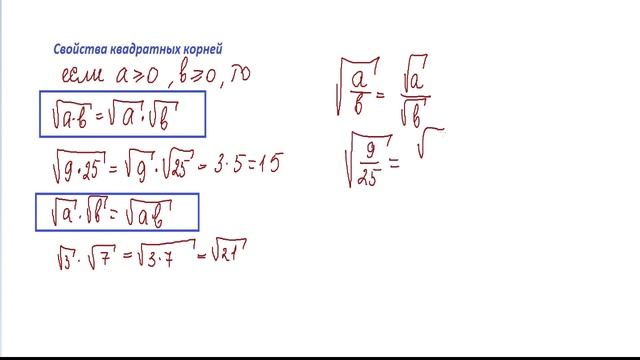 Свойства квадратных корней
если a ⩾ 0 , b ⩾ 0 , то
√(a·b) = √a · √b
√(9·25) = √9 · √25 = 3·5=15
√a · √b = √(ab)
√3 · √7 = √(3·7) = √21
√(a/b) = √a/√b
√(9/25) = √